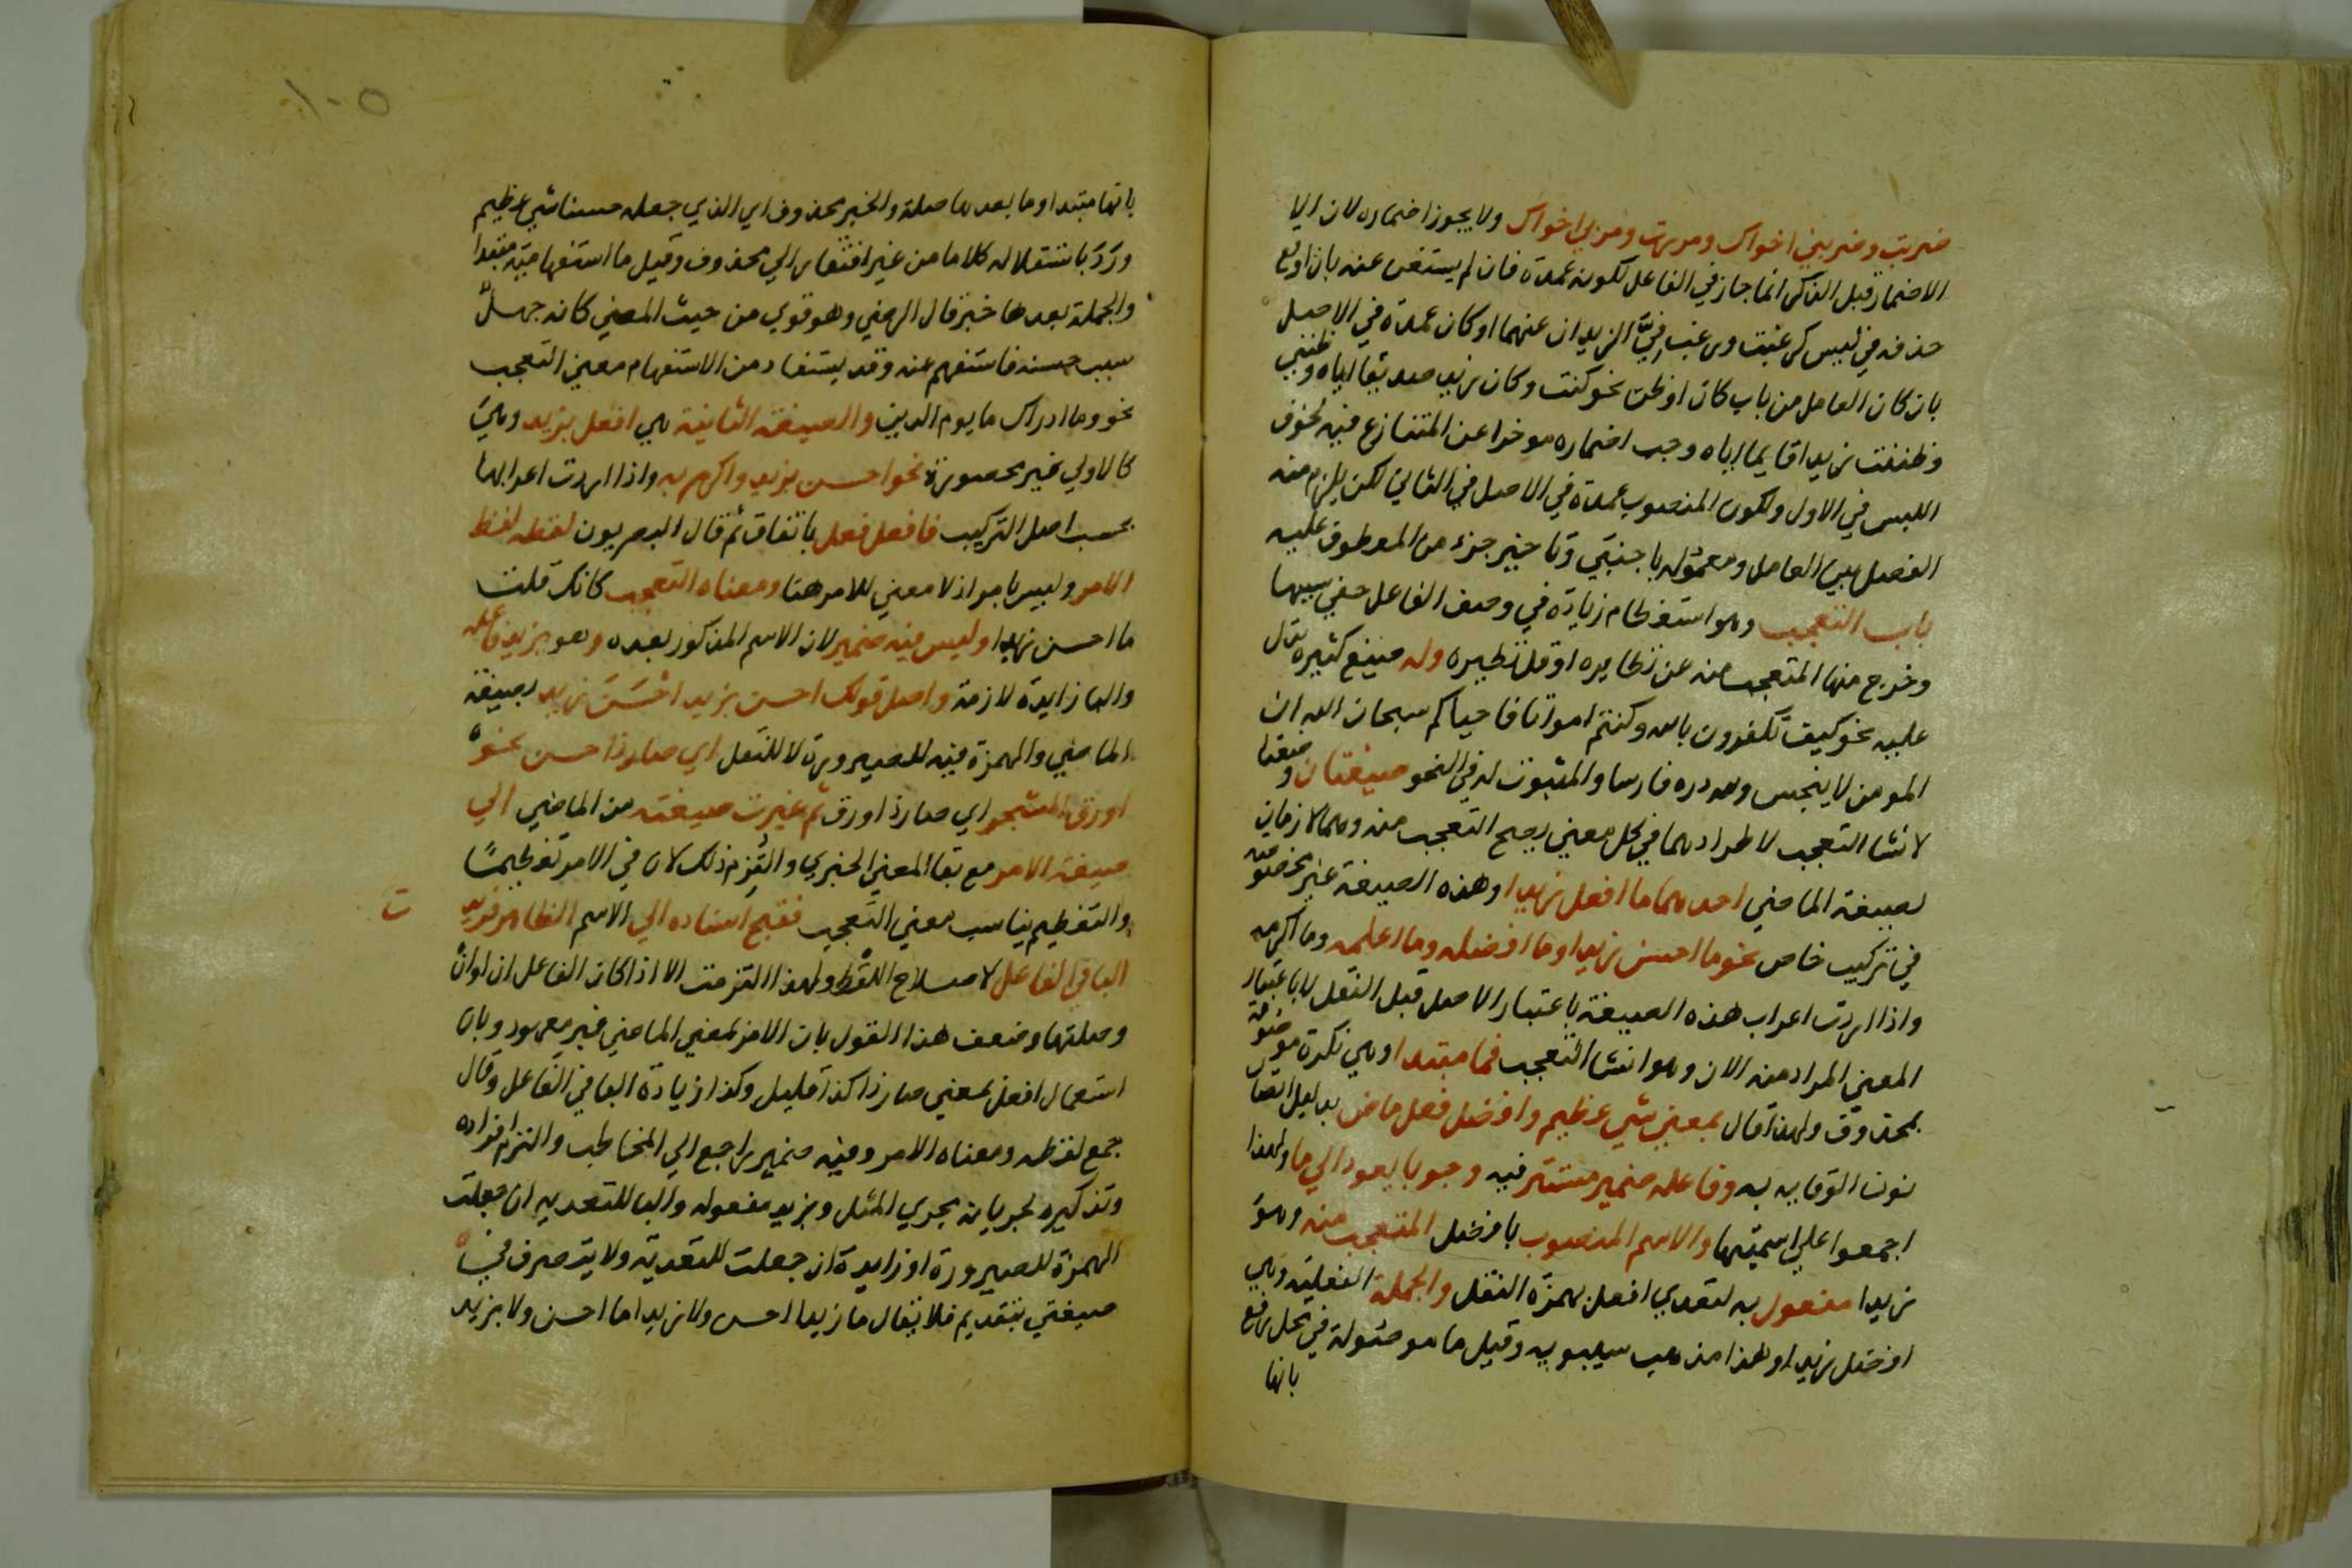 ضربت وضربني اخواك ومررت ومر بي اخواك ولا يجوز اضماره لان الا
الاضمار قبل الذكر انما جاز في الفاعل لكونه عمدة فان لم يستغن عنه بان اوقع
حذفه في لبس كرغبت ورغب فيّ الزيدان عنهما او كان عمدة في الاصل
بان كان العامل من باب كان او ظن نحو كنت وكان زيد صديقا اياه وظنني
وظننت زيدا قايما اياه وجب اضماره موخرا عن المتنازع فيه لخوف
اللبس في الاول ولكون المنصوب عمدة في الاصل في الثاني لكن يلزم منه
الفصل بين العامل ومعموله باجنبي وتاخير جزء من المعطوف عليه
باب التعجب وهو استعظام زيادة في وصف الفاعل خفي سببها
وخرج منها المتعجب منه عن نظايره او قل نظيره وله صيغ كثيرة تدل
عليه نحو كيف تكفرون بالله وكنتم امواتا فاحياكم سبحان الله ان
المومن لا ينجس ولله دره فارسا والمبوب له في النحو صيغتان وضعتا
لانشا التعجب لاطرادهما في كل معني يصح التعجب منه وهما لازمان
لصيغة الماضي احدهما ما افعل زيدا وهذه الصيغة غير مخصوصة
في تركيب خاص نحو ما احسن زيدا وما افضله وما اعلمه وما اكرمه
واذا اردت اعراب هذه الصيغة باعتبار الاصل قبل النقل لا باعتبار
المعني المراد منه الان وهو انشا التعجب فما مبتدا وهي نكرة موصوفة
بمحذوف ولهذا قال بمعني شي عظيم وافضل فعل ماض بدليل اتصال
نون الوقاية به وفاعله ضمير مستتر فيه وجوبا يعود الي ما ولهذا
اجمعوا علي اسميتها والاسم المنصوب بافضل المتعجب منه وهو
زيدا مفعول به لتعدي افعل بهمزة النقل والجملة الفعلية وهي
افضل زيدا وهذا مذهب سيبويه وقيل ما موصولة في محل رفع
بانها
١٠٥
بانها مبتدا وما بعدها صلة والخبر محذوف اي الذي جعله حسنا شي عظيم
ورد باستقلاله كلاما من غير افتقار الي محذوف وقيل ما استفهامية مبتدا
والجملة بعدها خبر قال الرضي وهو قوي من حيث المعني كانه جهل
سبب حسنه فاستفهم عنه وقد يستفاد من الاستفهام معني التعجب
نحو وما ادراك ما يوم الدين والصيغة الثانية هي افعل بزيد وهي
كالاولي غير محصورة نحو احسن بزيد واكرم به واذا اردت اعرابها
بحسب اصل التركيب فافعل فعل باتفاق ثم قال البصريون لفظه لفظ
الامر وليس بامر اذ لا معني للامر هنا ومعناه التعجب كانك قلت
ما احسن زيدا وليس فيه ضمير لان الاسم المذكور بعده وهو بزيد فاعله
والبا زايدة لازمة واصل قولك احسن بزيد احسن زيد بصيغة
الماضي والهمزة فيه للصيرورة لا للنقل اي صار ذا حسن نحو
اورق الشجر اي صار ذا ورق ثم غيرت صيغته من الماضي الي
صيغة الامر مع بقا المعني الخبري والتزم ذلك لان في الامر تعظيما
والتعظيم يناسب معني التعجب فقبح اسناده الي الاسم الظاهر فزيد ت
البا في الفاعل لاصلاح اللفظ ولهذا التزمت الا اذا كان الفاعل ان او ان
وصلتها وضعف هذا القول بان الامر لمعني الماضي غير معهود وبان
استعمال افعل بمعني صار ذا كذا قليل وكذا زيادة البا في الفاعل وقال
جمع لفظه ومعناه الامر وفيه ضمير راجع الي المخاطب والتزم افراده
وتذكيره لجريانه مجري المثل وبزيد مفعوله والبا للتعديه ان جعلت
الهمزة للصيرورة او زايدة ان جعلت للتعدية ولا يتصرف في
صيغتي بتقديم فلا يقال ما زيدا احسن ولا زيدا ما احسن ولا بزيد